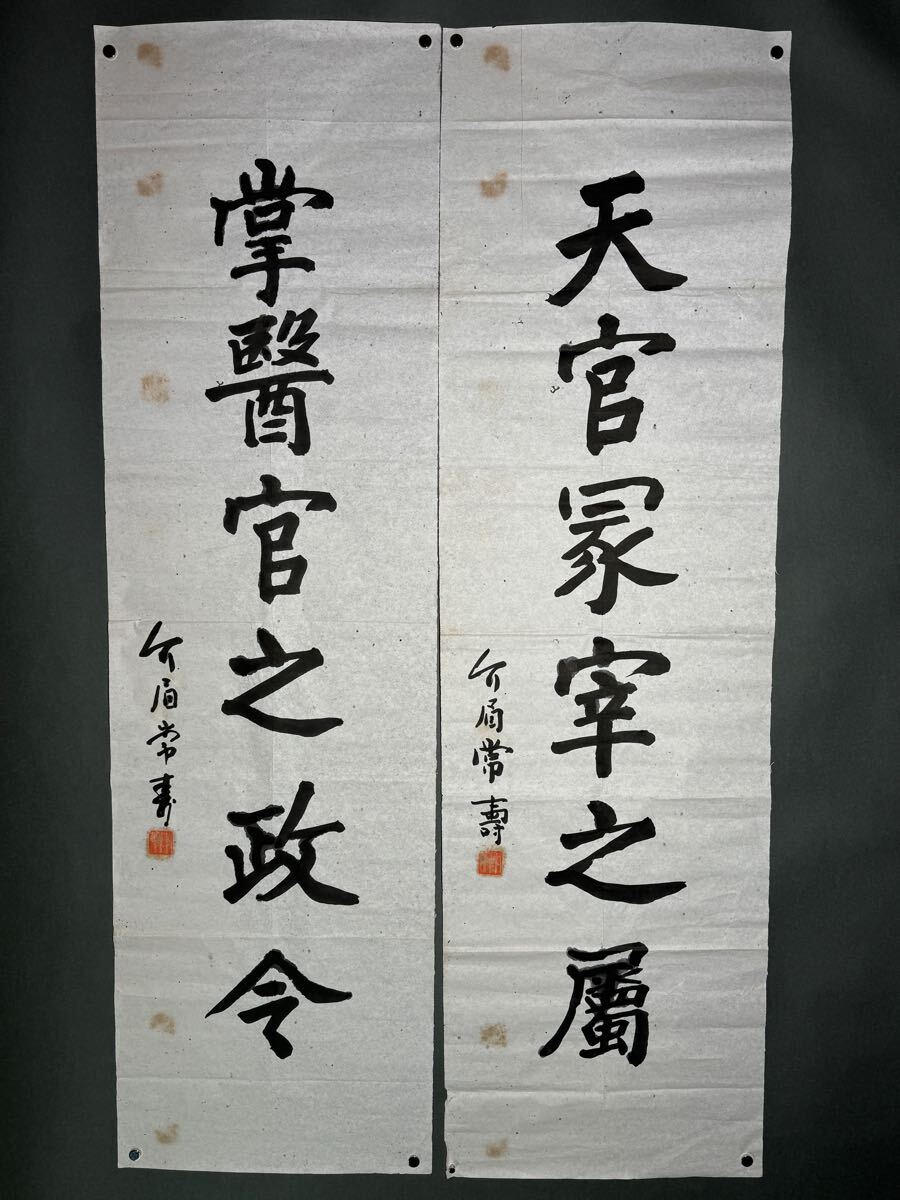 天官冢宰之屬
介眉常壽
掌醫官之政令
介眉常壽